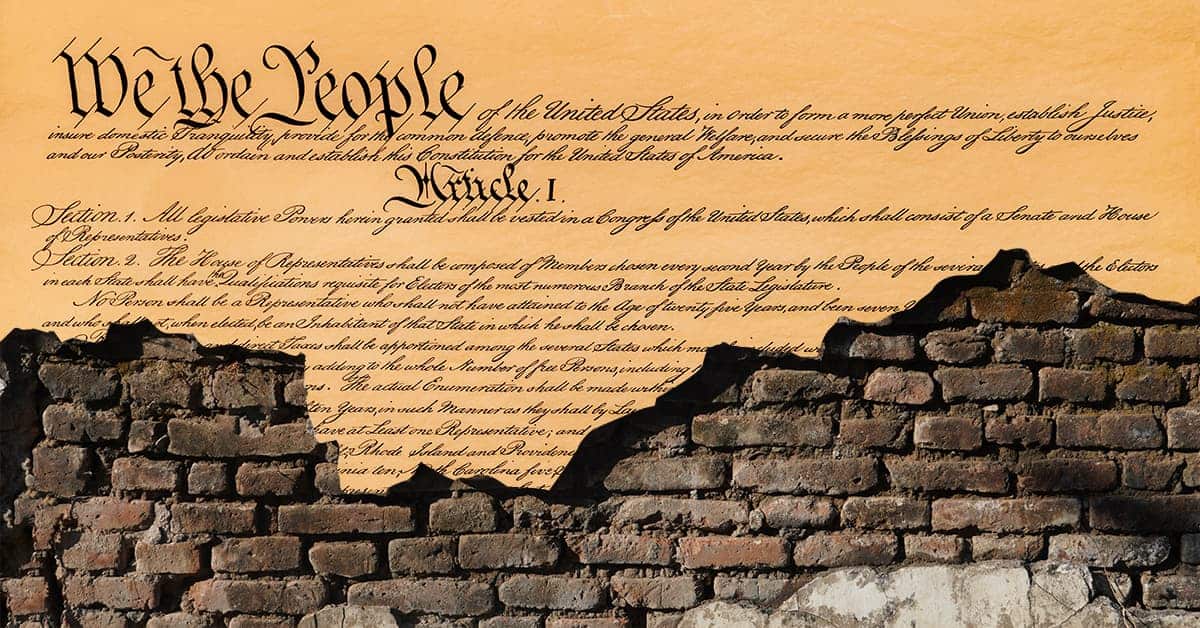 We the People of the United States, in order to form a more perfect Union, establish Justice,
insure domestic Tranquility, provide for the common defence, promote the general Welfare, and secure the Blessings of Liberty to ourselves
and our Posterity, do ordain and establish this Constitution for the United States of America.
Article. I.
Section. 1. All legislative Powers herein granted shall be vested in a Congress of the United States, which shall consist of a Senate and House
of Representatives.
Section. 2. The House of Representatives shall be composed of Members chosen every second Year by the People of the several the Electors
in each State shall have the Qualifications requisite for Electors of the most numerous Branch of the State Legislature.
No Person shall be a Representative who shall not have attained to the Age of twenty five Years, and been seven
and who shall not, when elected, be an Inhabitant of that State in which he shall be chosen.
direct Taxes shall be apportioned among the several States which may included
adding to the whole Number of free Persons, including
The actual Enumeration shall be made
ten Years, in such Manner as they shall by
have at Least one Representative; and
Rhode Island and
ten, Carolina five